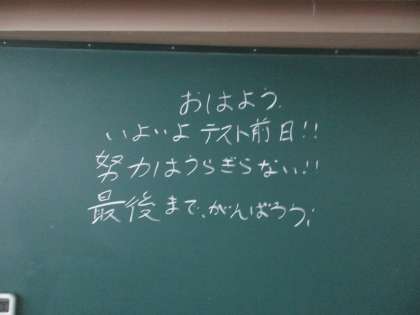 おはよう.
いよいよ テスト前日!!
努力はうらぎらない!!
最後まで、がんばろう!